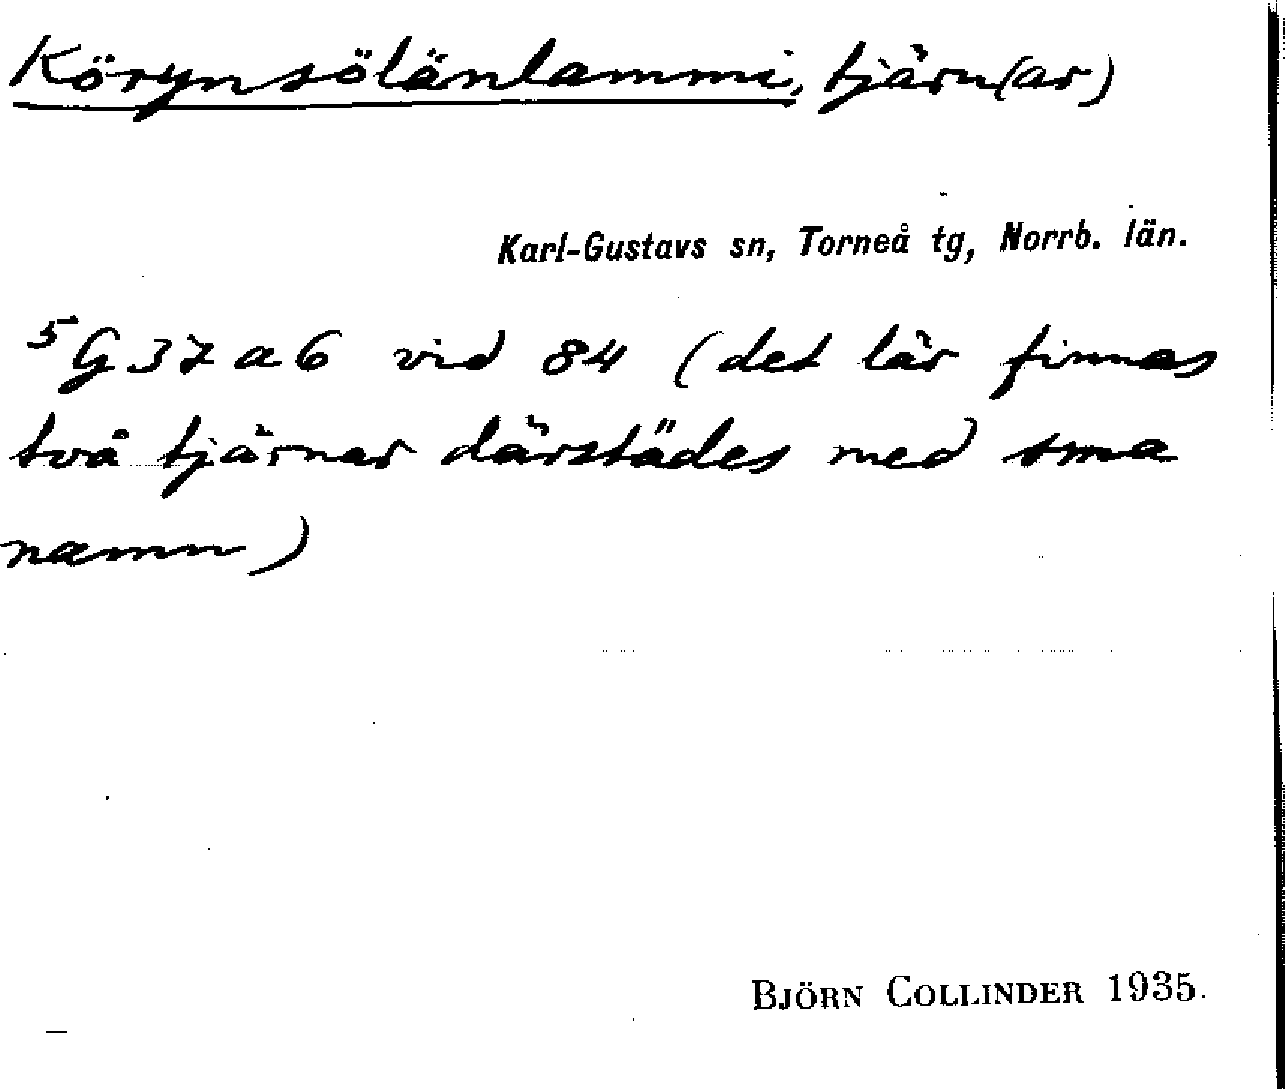 Körynsölänlammi, tjärn(ar)
Karl-Gustavs sn, Torneå tg, Norrb. län.
5 G 37 a 6 vid 84 (det lär finnas
två tjärnar därstädes med sma
namn)
BJÖRN COLLINDER 1935.